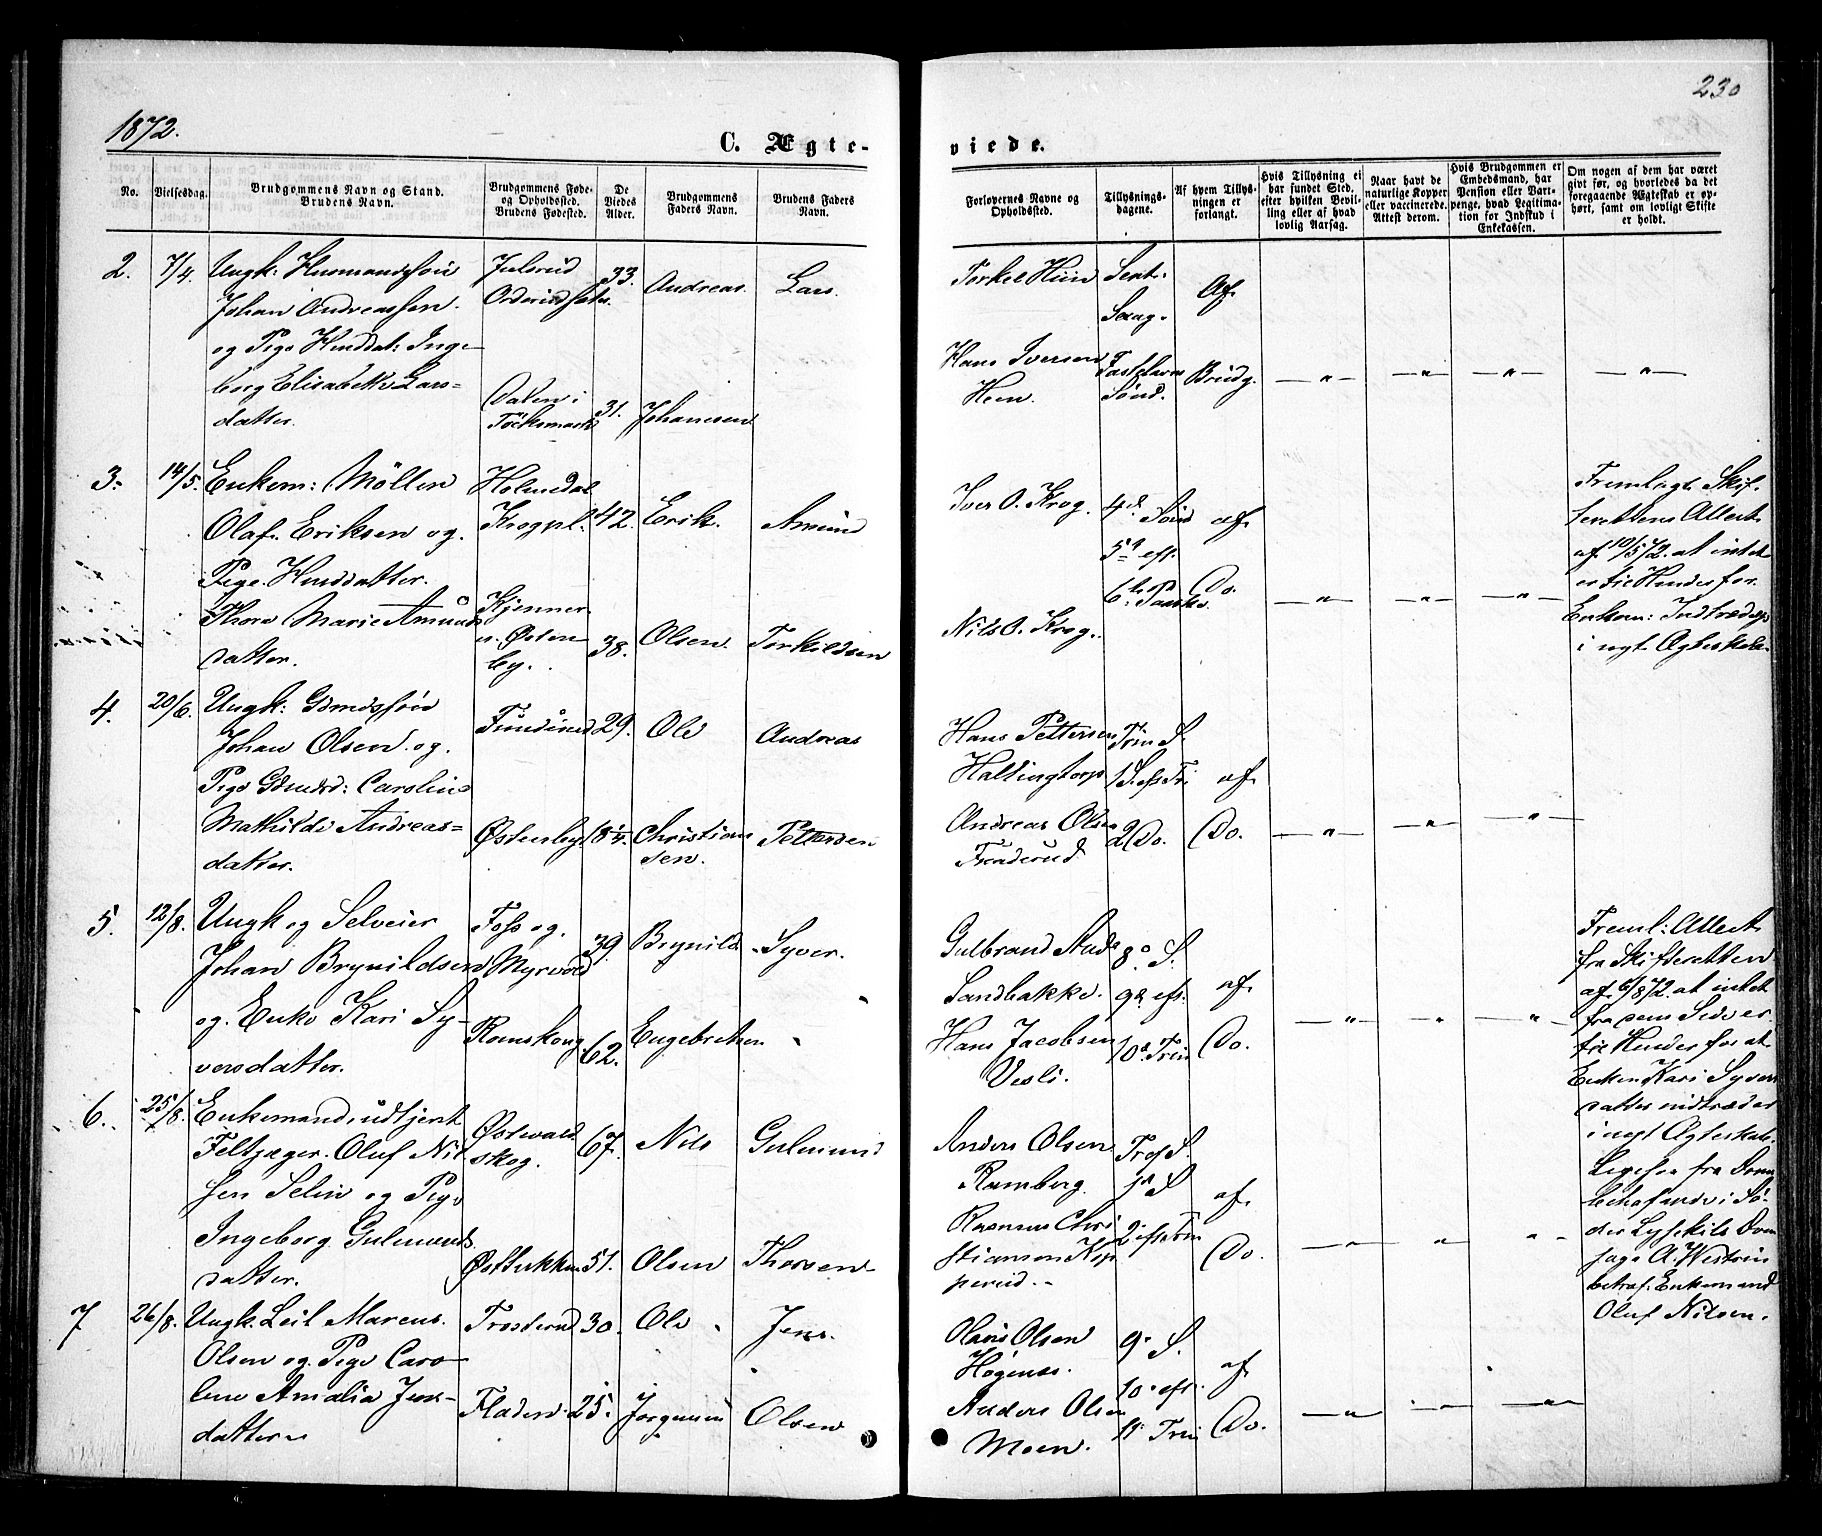 230
1872.
C. Ægteviede.
No.
Vielsesdag.
Brudgommens Navn og Stand.
Brudens Navn.
Brudgommens Føde-
og Opholdsted.
Brudens Fødested.
De
Viedes
Alder.
Brudgommens
Faders Navn.
Brudens Faders
Navn.
Forlovernes Navne og
Opholdsted.
Tillysnings-
dagene.
Af hvem Tillys-
ningen er
forlangt.
Hvis Tillysning ei
har fundet Sted,
efter hvilken Bevil-
ling eller af hvad
lovlig Aarsag.
Naar havt de
naturlige Kopper
eller vaccinerede.
Attest derom.
Hvis Brudgommen er
Embedsmand, har
Pension eller Vart-
penge, hvad Legitima-
tion for Indskud i
Enkekassen.
Om nogen af dem har været
givt før, og hvorledes da det
foregaaende Ægteskab er op-
hørt, samt om lovligt Skifte
er holdt.
2. 7/4
Ungk: Husmandssøn
Johan Andreassen.
og Pige Husdat: Inge-
borg Elisabeth Lars-
datter.
Julsrud
33.
Andreas.
Lars.
Dalen i
31.
Johannesen
Torkel Hiin
Hans Iversen
Heen.
Sexag.
Fastelavns
Sønd.
Af
Brudg.
3. 14/5.
Enkem: Mölleren
Olaf Eriksen og
Pige Husdatter
Thora Marie Amunds
datter.
Holmedal
Krogpl.
42.
Erik.
Amund
Kjenner
u. Østen-
by.
38.
Olsen
Torkildsen
Iver O. Krog.
Nils O. Krog.
4d Sønd
5te eft.
6te Paaske.
af
Do.
Fremlagt Skif-
terettens Attest
af 10/5 72. at intet
er til Hinder for
Enkem: Indtrædelse
i nyt Ægteskab.
4. 20/6.
Ungk: Gdmdssøn
Johan Olsen og
Pige Gdmdsd: Caroline
Mathilde Andreas-
datter.
Funderud
29.
Ole
Andreas
Østenby
18 1/4.
Christian
sen.
Pettersen
Hans Pettersen
Haltingtorp
Andreas Olsen
Funderud
Trin S.
1 S. eft Tri
2 Do.
af
Do.
5. 12/8.
Ungk og Selveier
Johan Brynildsen
og Enke Kari Sy-
versdatter.
Foss og
Myrvold
39.
Brynild
Syver.
Romskoug
62.
Engebretsen
Gulbrand Ands
Sandbakke.
Hans Jacobsen
Vesli.
8de S.
9de eft.
10de Trin
af
Do.
Freml: Attest
fra Skifteretten
af 6/8 72. at intet
fra dens Side er
til Hinder for at
Enken Kari Syvers
datter indtræder
i nyt Ægteskab.
6. 25/8.
Enkemand, udtjent
Feltjæger Oluf Nil
sen Selin og Pige
Ingeborg Gulmunds
datter.
Østvald
skog.
67.
Nils
Gulmund
Østbækken
51.
Olsen
Thorsen
Anders Olsen
Ramberg.
Rasmus Chri
stiansen Kop
perud.
Tref S.
1ste S
2. eft Trin
af
Do.
Ligesaa fra Dom
behafande i Sö-
der Lyseskils Dom
saga A. Westrin
betraf. Enkemand
Oluf Nilsen.
7 26/8.
Ungk. Leil Marcus
Olsen og Pige Caro-
line Amalia Jens-
datter
Trosterud
30.
Ole
Jens.
Fladen
25.
Jørgensen
Olsen
Hans Olsen
Høgenes.
Anders Olsen
Moen.
9. S.
10. eft.
11. Trin
af
Do.